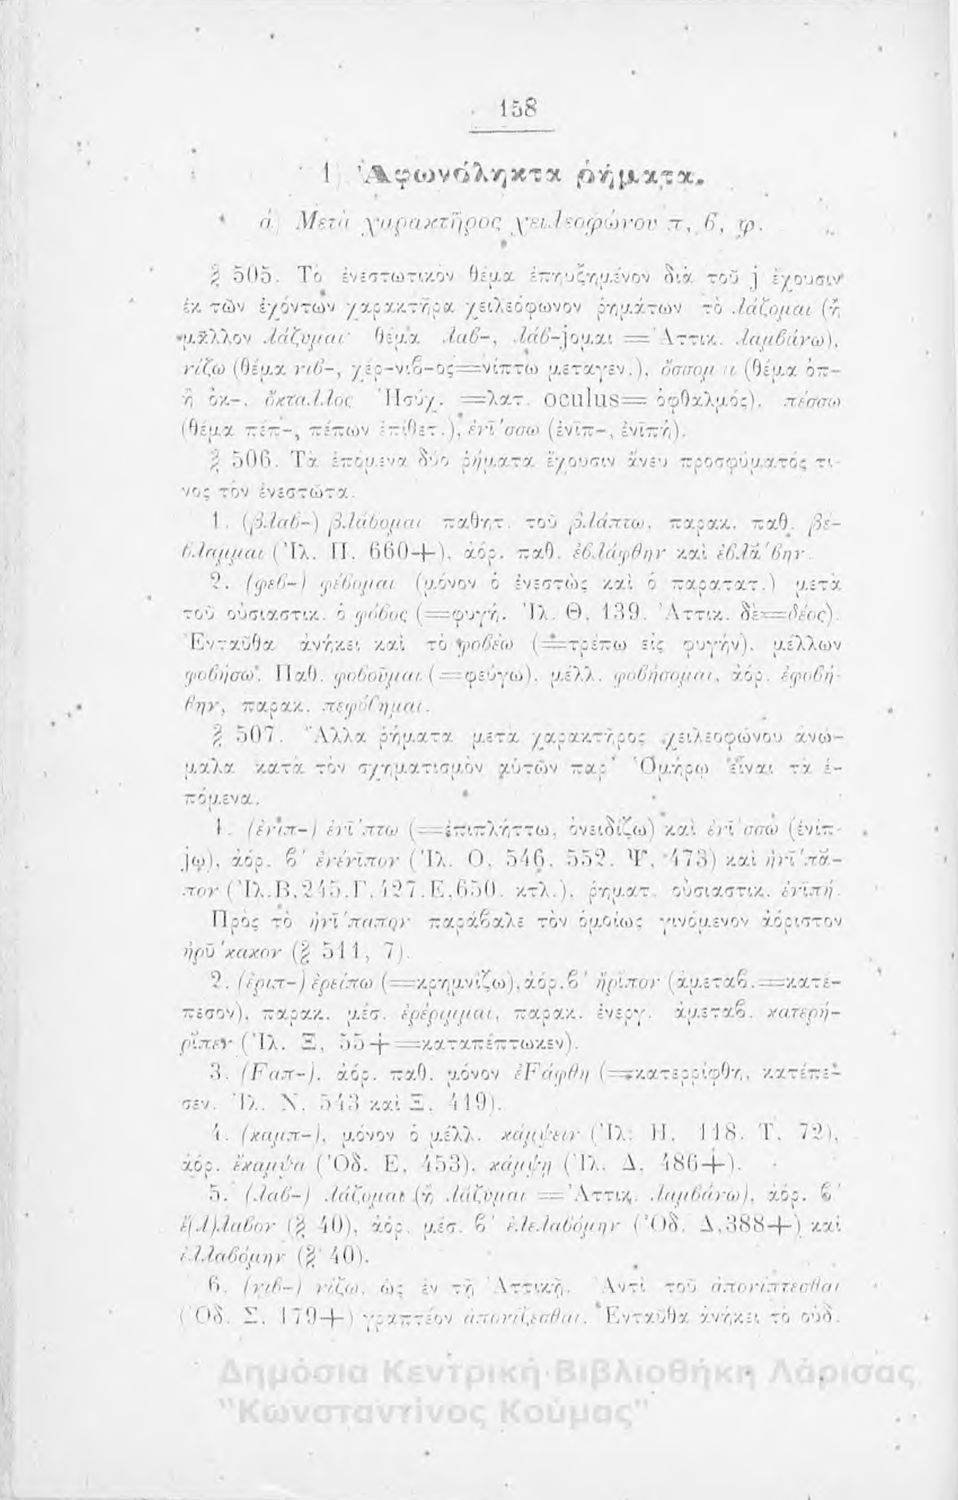 158
1) Ἀφωνόληκτα ῥήματα.
α.) Μετὰ χαρακτῆρος χειλεοφώνου π, β, φ.
§ 505. Τὸ ἐνεστωτικὸν θέμα ἐπηυξημένον διὰ τοῦ j ἔχουσιν
ἐκ τῶν ἐχόντων χαρακτῆρα χειλεόφωνον ῥημάτων τὸ λάζομαι (ἢ
μᾶλλον λάζυμαι· θέμα λαβ-, λάβ-jομαι = Ἀττικ. λαμβάνω),
νίζω (θέμα νιβ-, χέρ-νιβ-ος=νίπτω μεταγεν.), ὄσσομαι (θέμα ὀπ-
ἢ ὀκ-, ὄκταλλος Ἡσύχ. =λατ. oculus= ὀφθαλμός), πέσσω
(θέμα πεπ-, πέπων ἐπίθετ.), ἐνί̄σσω (ἐνῑπ-, ἐνῑπή).
§ 506. Τὰ ἑπόμενα δύο ῥήματα ἔχουσιν ἄνευ προσφύματός τι-
νος τὸν ἐνεστῶτα.
1. (βλαβ-) βλάβομαι παθητ. τοῦ βλάπτω, παρακ. παθ. βέ-
βλαμμαι (Ἰλ. Π. 660+), ἀόρ. παθ. ἐβλάφθην καὶ ἐβλά̆βην.
2. (φεβ-) φέβομαι (μόνον ὁ ἐνεστὼς καὶ ὁ παρατατ.) μετὰ
τοῦ οὐσιαστικ. ὁ φόβος (=φυγή. Ἰλ. Θ. 139. Ἀττικ. δὲ=δέος).
Ἐνταῦθα ἀνήκει καὶ τὸ φοβέω (=τρέπω εἰς φυγήν), μέλλων
φοβήσω. Παθ. φοβοῦμαι (=φεύγω), μέλλ. φοβήσομαι, ἀόρ. ἐφοβή-
θην, παρακ. πεφόβημαι.
§ 507. Ἄλλα ῥήματα μετὰ χαρακτῆρος χειλεοφώνου ἀνώ-
μαλα κατὰ τὸν σχηματισμὸν αὐτῶν παρ' Ὁμήρῳ εἶναι τὰ ἑ-
πόμενα.
1. (ἐνῑπ-) ἐνί̄πτω (=ἐπιπλήττω, ὀνειδίζω) καὶ ἐνί̄σσω (ἐνίπ-
jω), ἀόρ. β' ἐνένῑπον (Ἰλ. Ο. 546. 552. Ψ. 473) καὶ ἠνί̄πᾰ-
πον (Ἰλ.Β.245.Γ.427.Ε.650. κτλ.), ῥηματ. οὐσιαστικ. ἐνῑπή.
Πρὸς τὸ ἠνί̄παπον παράβαλε τὸν ὁμοίως γινόμενον ἀόριστον
ἠρύ̄κακον (§ 511, 7).
2. (ἐριπ-) ἐρείπω (=κρημνίζω), ἀόρ.β' ἤρῐπον (ἀμεταβ.=κατέ-
πεσον), παρακ. μέσ. ἐρέριμμαι, παρακ. ἐνεργ. ἀμεταβ. κατερή-
ρῐπεν (Ἰλ. Ξ. 55+=καταπέπτωκεν).
3. (Fαπ-), ἀόρ. παθ. μόνον ἐFάφθη (=κατερρίφθη, κατέπε-
σεν. Ἰλ. Ν. 543 καὶ Ξ. 419).
4. (καμπ-), μόνον ὁ μέλλ. κάμψειν (Ἰλ. Η. 118. Τ. 72),
ἀόρ. ἔκαμψα (Ὀδ. Ε. 453), κάμψῃ (Ἰλ. Δ. 486+).
5. (λαβ-) λάζομαι (ἢ λάζυμαι = Ἀττικ. λαμβάνω), ἀόρ. β'
ἔ(λ)λαβον (§ 40), ἀόρ. μέσ. β' ἐλελαβόμην (Ὀδ. Δ.388+) καὶ
ἐλλαβόμην (§ 40).
6. (νιβ-) νίζω, ὡς ἐν τῇ Ἀττικῇ. Ἀντὶ τοῦ ἀπονίπτεσθαι
(Ὀδ. Σ. 179+) γραπτέον ἀπονίζεσθαι. Ἐνταῦθα ἀνήκει τὸ οὐδ.
Δημόσια Κεντρική Βιβλιοθήκη Λάρισας
"Κωνσταντίνος Κούμας"